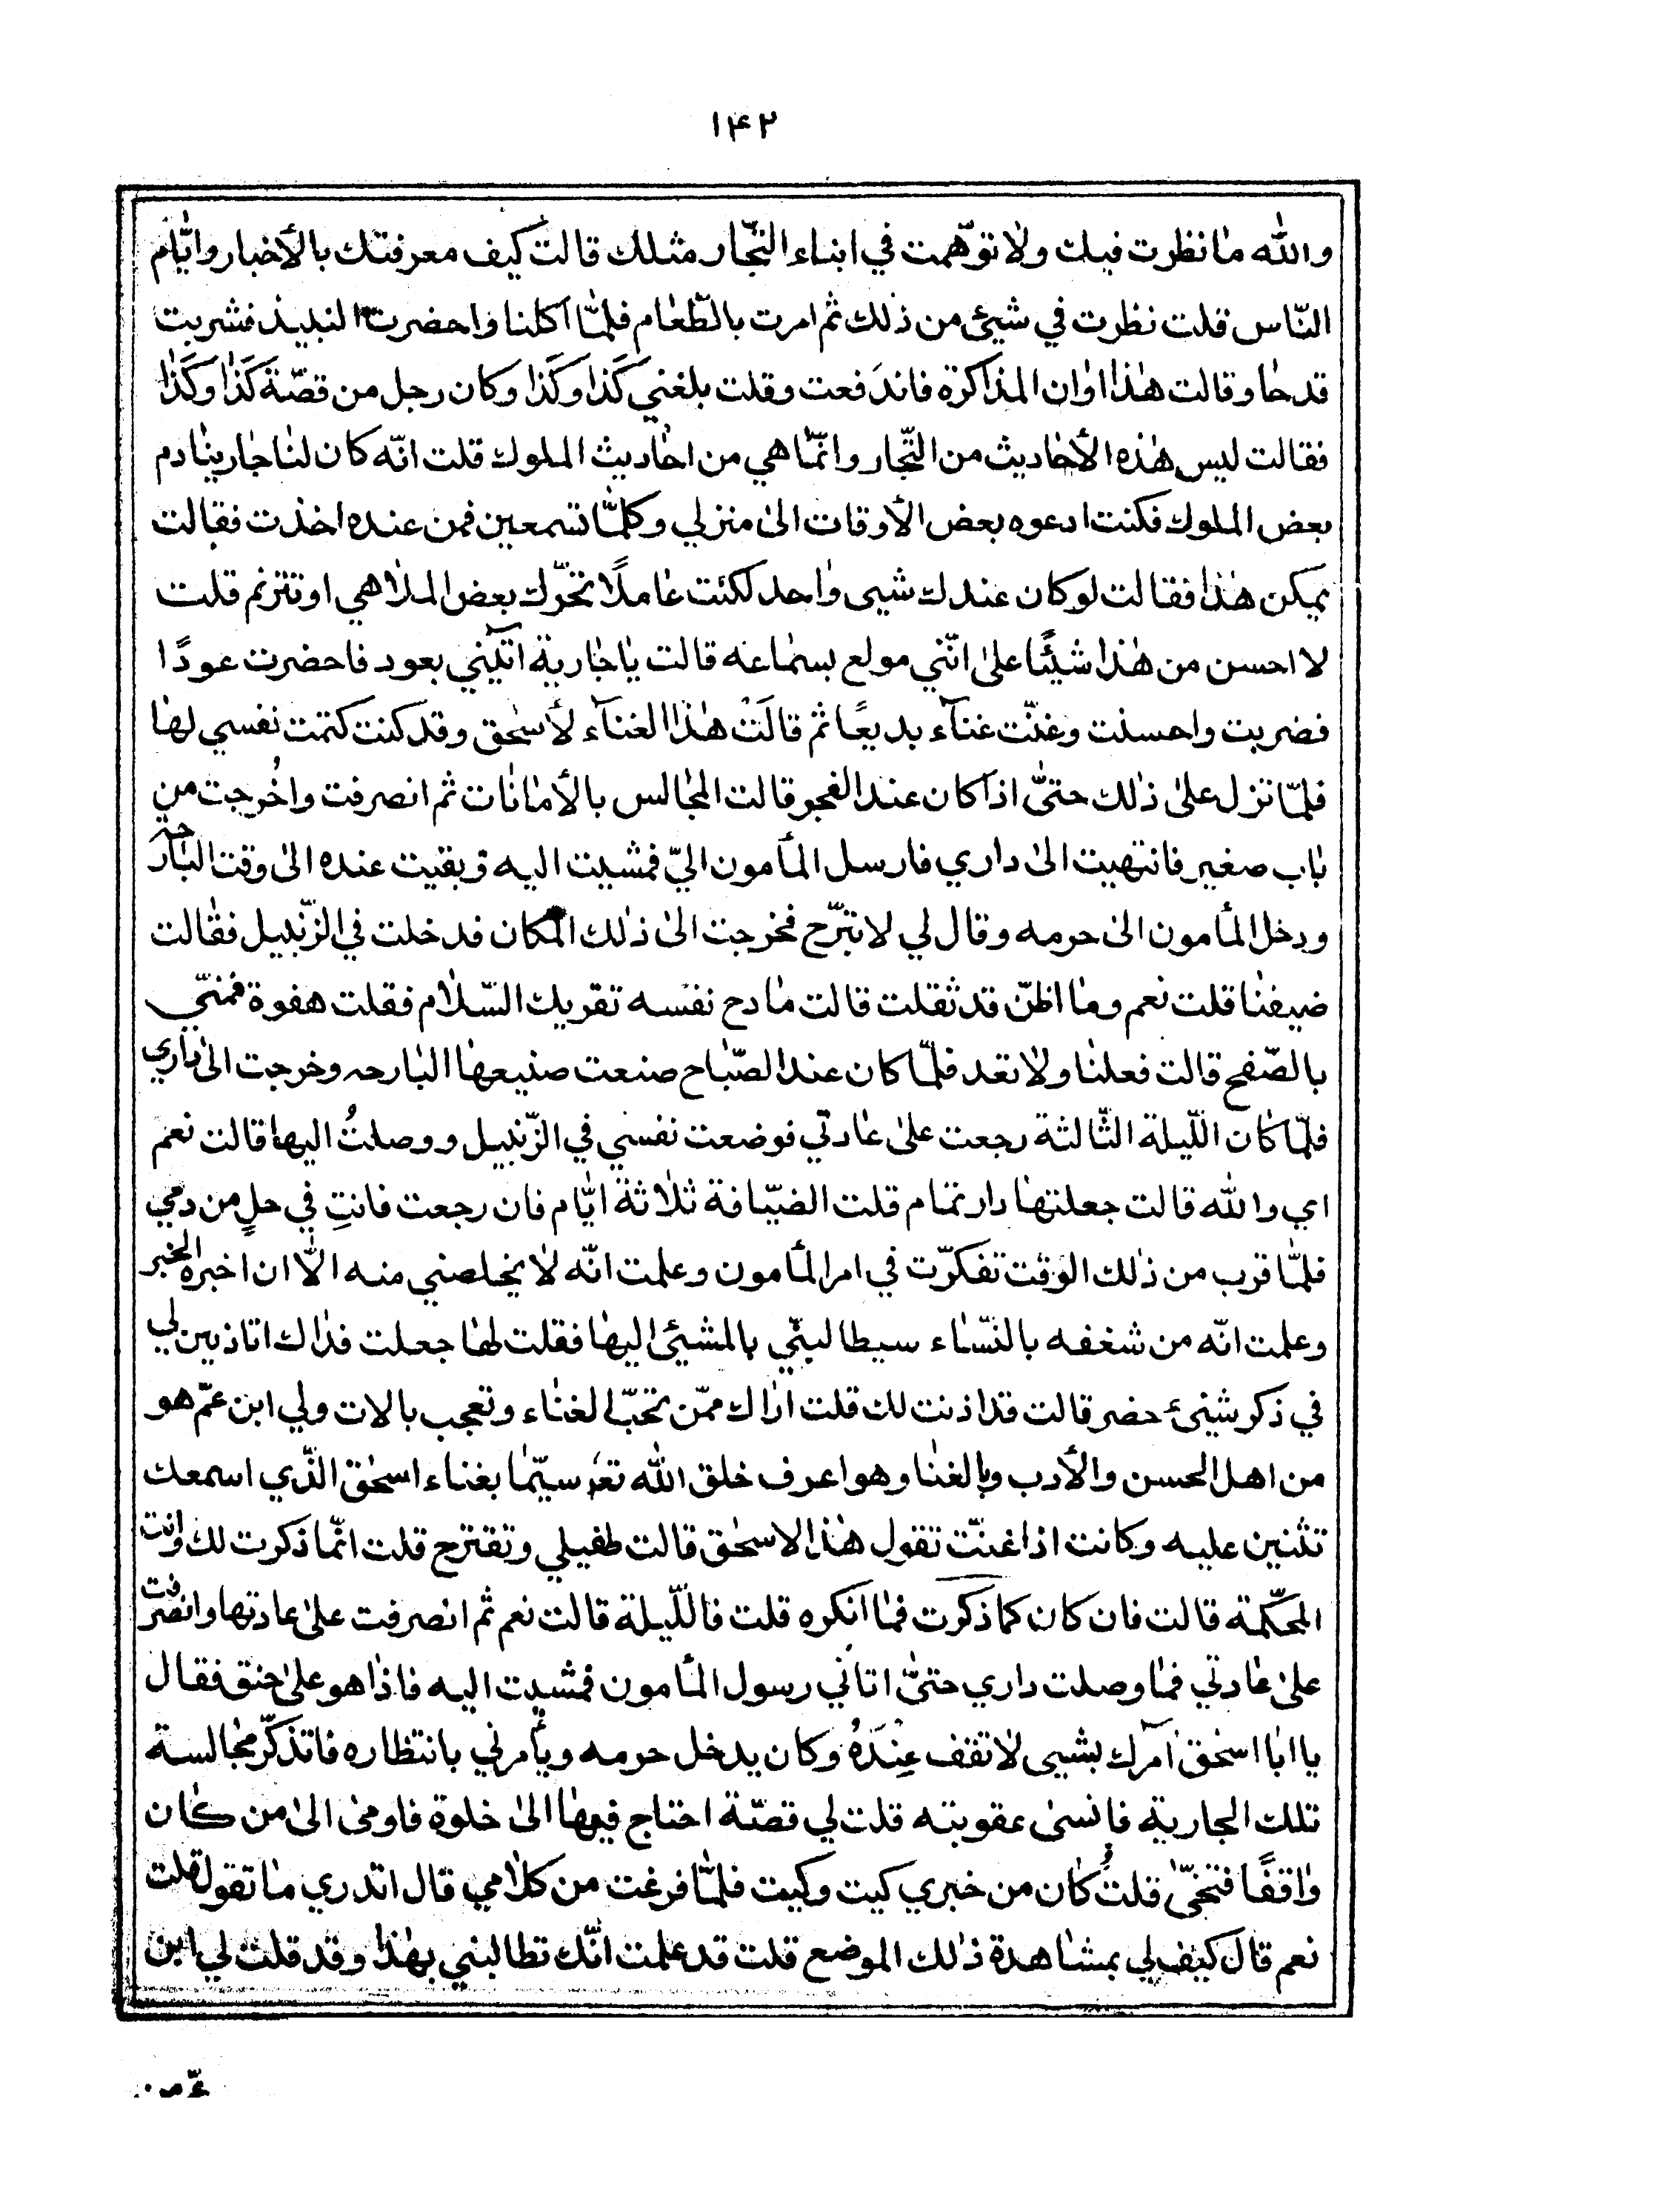 ۱۴۲
والله ما نظرت فيك ولا توهّمت في ابناء التجّار مثلك قالت كيف معرفتك بالأخبار وايّام
النّاس قلت نظرت في شيئ من ذلك ثم امرت بالطّعام فلمّا اكلنا واحضرت النبيذ فشربت
قدحا وقالت هذا اوان المذاكرة فاندَفعت وقلت بلغني كَذا وكَذا وكان رجل من قصّة كَذا وكَذا
فقالت ليس هذه الأحاديث من التّجار وانّما هي من احاديث الملوك قلت انّه كان لنا جار ينادم
بعض الملوك فكنت ادعوه بعض الأوقات الى منزلي وكلّما تسمعين فمن عنده اخذت فقالت
يمكن هذا فقالت لو كان عندك شيى واحد لكنت عاملًا تحرّك بعض الملاهي او تترنم قلت
لا احسن من هذا شيئًا على انّني مولع بسماعه قالت يا جارية اتيني بعود فاحضرت عودًا
فضربت واحسنت وغنّت غناء بديعًا ثم قالَتْ هذا الغناء لأسحق وقد كنت كتمت نفسي لها
فلمّا نزل على ذلك حتىّ اذا كان عند الفجر قالت المجالس بالأمانات ثم انصرفت واخُرجت من
باب صغير فانتهيت الى داري فارسل المأمون اليّ فمشيت اليه وبقيت عنده الى وقت البارحة
ودخل المأمون الى حرمه وقال لي لا تبرّح فخرجت الى ذلك المكان فدخلت في الزّنبيل فقالت
ضيفنا قلت نعم وما اظنّ قد ثقلت قالت مادح نفسه تقريك السّلام فقلت هفوة فمنّي
بالصّفح قالت فعلنا ولا تعد فلمّا كان عند الصّباح صنعت صنيعها البارحه وخرجت الى داري
فلمّا كان اللّيلة الثّالثة رجعت على عادتي فوضعت نفسي في الزّنبيل ووصلتُ اليها قالت نعم
اي والله قالت جعلتها دار تمام قلت الضيّافة ثلاثة ايّام فان رجعت فانتِ في حلٍ من دمي
فلمّا قرب من ذلك الوقت تفكرّت في امر المأمون وعلمت انّه لا يخلصني منه الّا ان اخبره الخبر
وعلمت انّه من شغفه بالنّساء سيطالبنّي بالمشيئ اليها فقلت لها جعلت فداك اتاذنين لي
في ذكر شيئ حضر قالت قد اذنت لك قلت اراك ممّن تحبّ الغناء وتعجب بالات ولي ابن عمّ هو
من اهل الحسن والأدب وبالغنا وهو اعرف خلق الله تع‍ سيّما بغناء اسحق الّذي اسمعك
تثنين عليه وكانت اذا غنّت تقول هذا لاسحق قالت طفيلي وتقترح قلت انّما ذكرت لك وانت
المحكّمة قالت فان كان كما ذكرت فما انكره قلت فاللّيلة قالت نعم ثم انصرفت على عادتها وانصرفت
على عادتي فما وصلت داري حتىّ اتاني رسول المأمون فمشيت اليه فاذا هو على حنق فقال
يا ابا اسحق آمرك بشيى لا تقف عِنْدَهُ وكان يدخل حرمه ويأمرني بانتظاره فاتذكّر مجالسة
تلك الجارية فانسى عقوبته قلت لي قصّة احتاج فيها الى خلوة فاومى الى من كان
واقفًا فتنحّى قلتُ كان من خبري كيت وكيت فلمّا فرغت من كلامي قال اتدري ما تقول قلت
نعم قال كيف لي بمشاهدة ذلك الموضع قلت قد علمت انّك تطالبني بهذا وقد قلت لي ابن
عّم